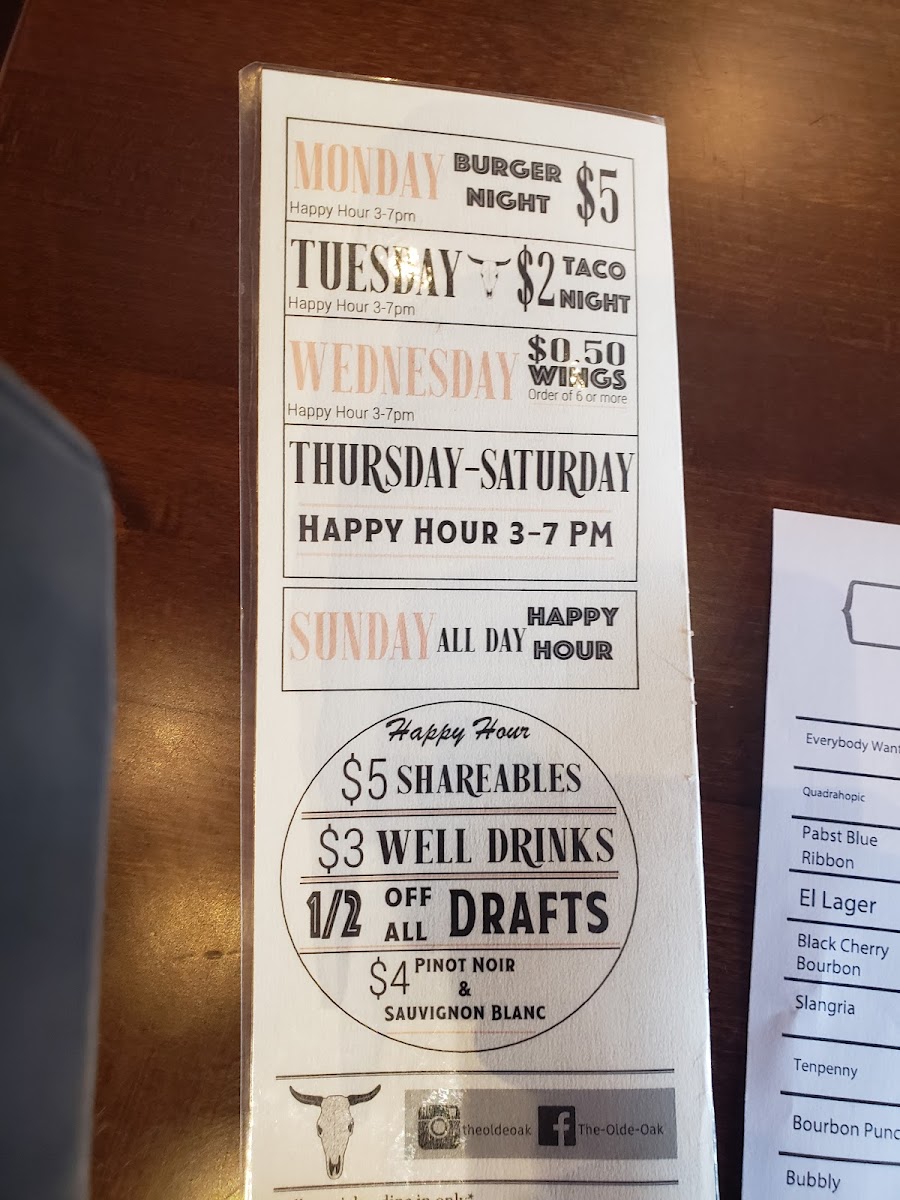 MONDAY BURGER NIGHT $5
Happy Hour 3-7pm
TUESDAY $2 TACO NIGHT
Happy Hour 3-7pm
WEDNESDAY $0.50 WINGS
Order of 6 or more
Happy Hour 3-7pm
THURSDAY-SATURDAY
HAPPY HOUR 3-7 PM
SUNDAY ALL DAY HAPPY HOUR
Happy Hour
$5 SHAREABLES
$3 WELL DRINKS
1/2 OFF ALL DRAFTS
$4 PINOT NOIR
&
SAUVIGNON BLANC
theoldeoak The-Olde-Oak
in only*
Everybody
Quadrahopic
Pabst Blue
Ribbon
El Lager
Black Cherry
Bourbon
Slangria
Tenpenny
Bourbon
Bubbly